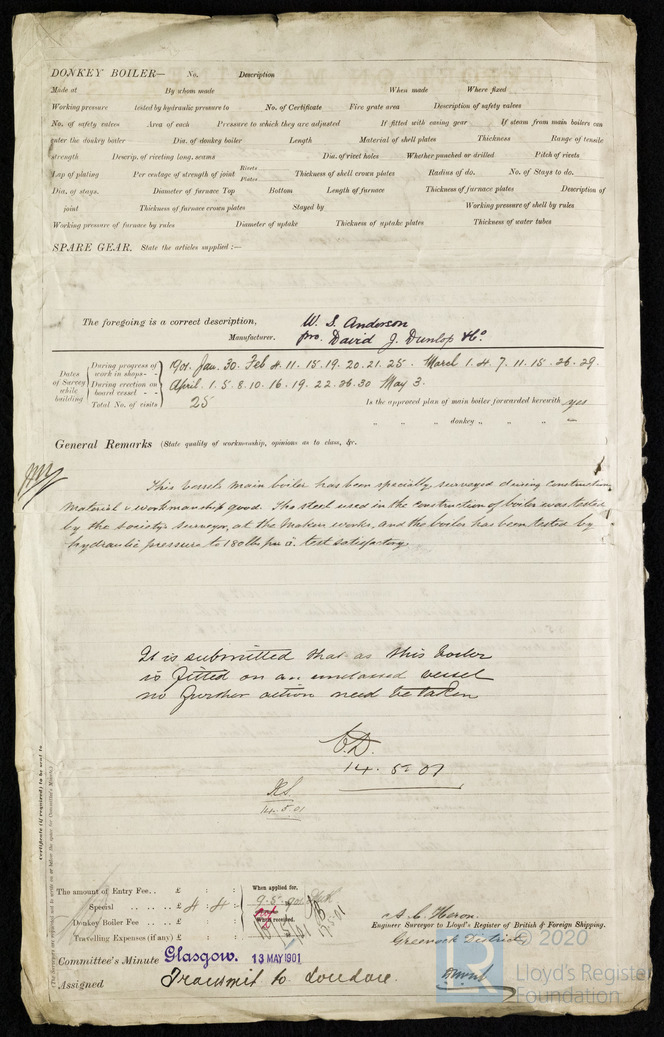 DONKEY BOILER— No. Description
Made at By whom made When made Where fixed
Working pressure tested by hydraulic pressure to No. of Certificate Fire grate area Description of safety valves
No. of safety valves Area of each Pressure to which they are adjusted If fitted with easing gear If steam from main boilers can
enter the donkey boiler Dia. of donkey boiler Length Material of shell plates Thickness Range of tensile
strength Descrip. of riveting long. seams Dia. of rivet holes Whether punched or drilled Pitch of rivets
Lap of plating Per centage of strength of joint Rivets Plates Thickness of shell crown plates Radius of do. No. of Stays to do.
Dia. of stays. Diameter of furnace Top Bottom Length of furnace Thickness of furnace plates Description of
joint Thickness of furnace crown plates Stayed by Working pressure of shell by rules
Working pressure of furnace by rules Diameter of uptake Thickness of uptake plates Thickness of water tubes
SPARE GEAR. State the articles supplied :—
The foregoing is a correct description, W. S. Anderson
Manufacturer. pro. David J. Dunlop & Co.
Dates of Survey while building
During progress of work in shops - - 1901. Jan. 30. Feb 4. 11. 15. 19. 20. 21. 25. March 1. 4. 7. 11. 15. 26. 29.
During erection on board vessel - - April. 1. 5. 8. 10. 16. 19. 22. 26. 30 May 3.
Total No. of visits 25 Is the approved plan of main boiler forwarded herewith yes
" " donkey " " "
General Remarks (State quality of workmanship, opinions as to class, &c.
This vessels main boiler has been specially surveyed during construction
material & workmanship good. The steel used in the construction of boiler was tested
by the society's surveyor, at the makers works, and the boiler has been tested by
hydraulic pressure to 180lbs per □". test satisfactory.
It is submitted that as this boiler
is fitted on an unclassed vessel
no further action need be taken
14. 5. 01
14.5.01
Certificate (if required) to be sent to
(The Surveyors are requested not to write on or below the space for Committee's Minute.)
The amount of Entry Fee.. £ : : When applied for,
Special .. .. .. £ 4 : 4 : 9.5.901
Donkey Boiler Fee .. £ : : When received.
Travelling Expenses (if any) £ : :
A. C. Heron.
Engineer Surveyor to Lloyd's Register of British & Foreign Shipping.
Greenock District
Committee's Minute Glasgow. 13 MAY 1901
Assigned Transmit to London.
© 2020
Lloyd's Register
Foundation